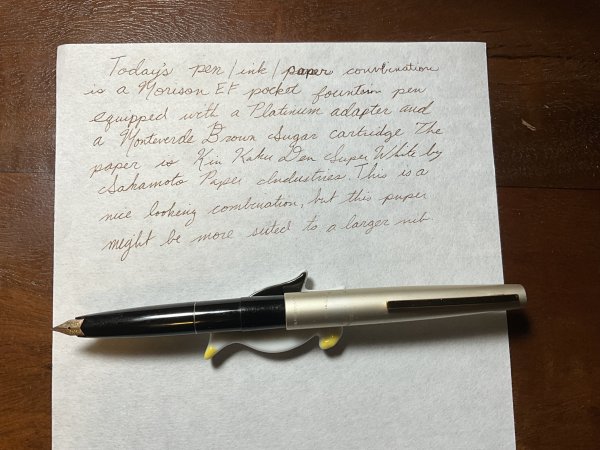 Today's pen/ink/paper combination
is a Morison EF pocket fountain pen
equipped with a Platinum adapter and
a Monteverde Brown Sugar cartridge The
paper is Kin Kaku Den Super White by
Sakamoto Paper Industries. This is a
nice looking combination, but this paper
might be more suited to a larger nib